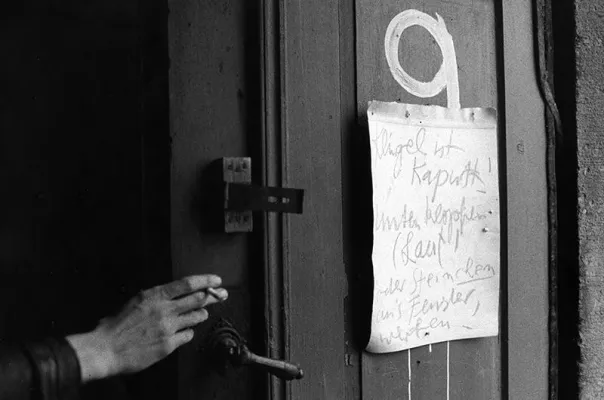 9
Klingel ist
Kaputt!
unten klopfen
(Laut)
oder Steinchen
an's Fenster,
werfen.